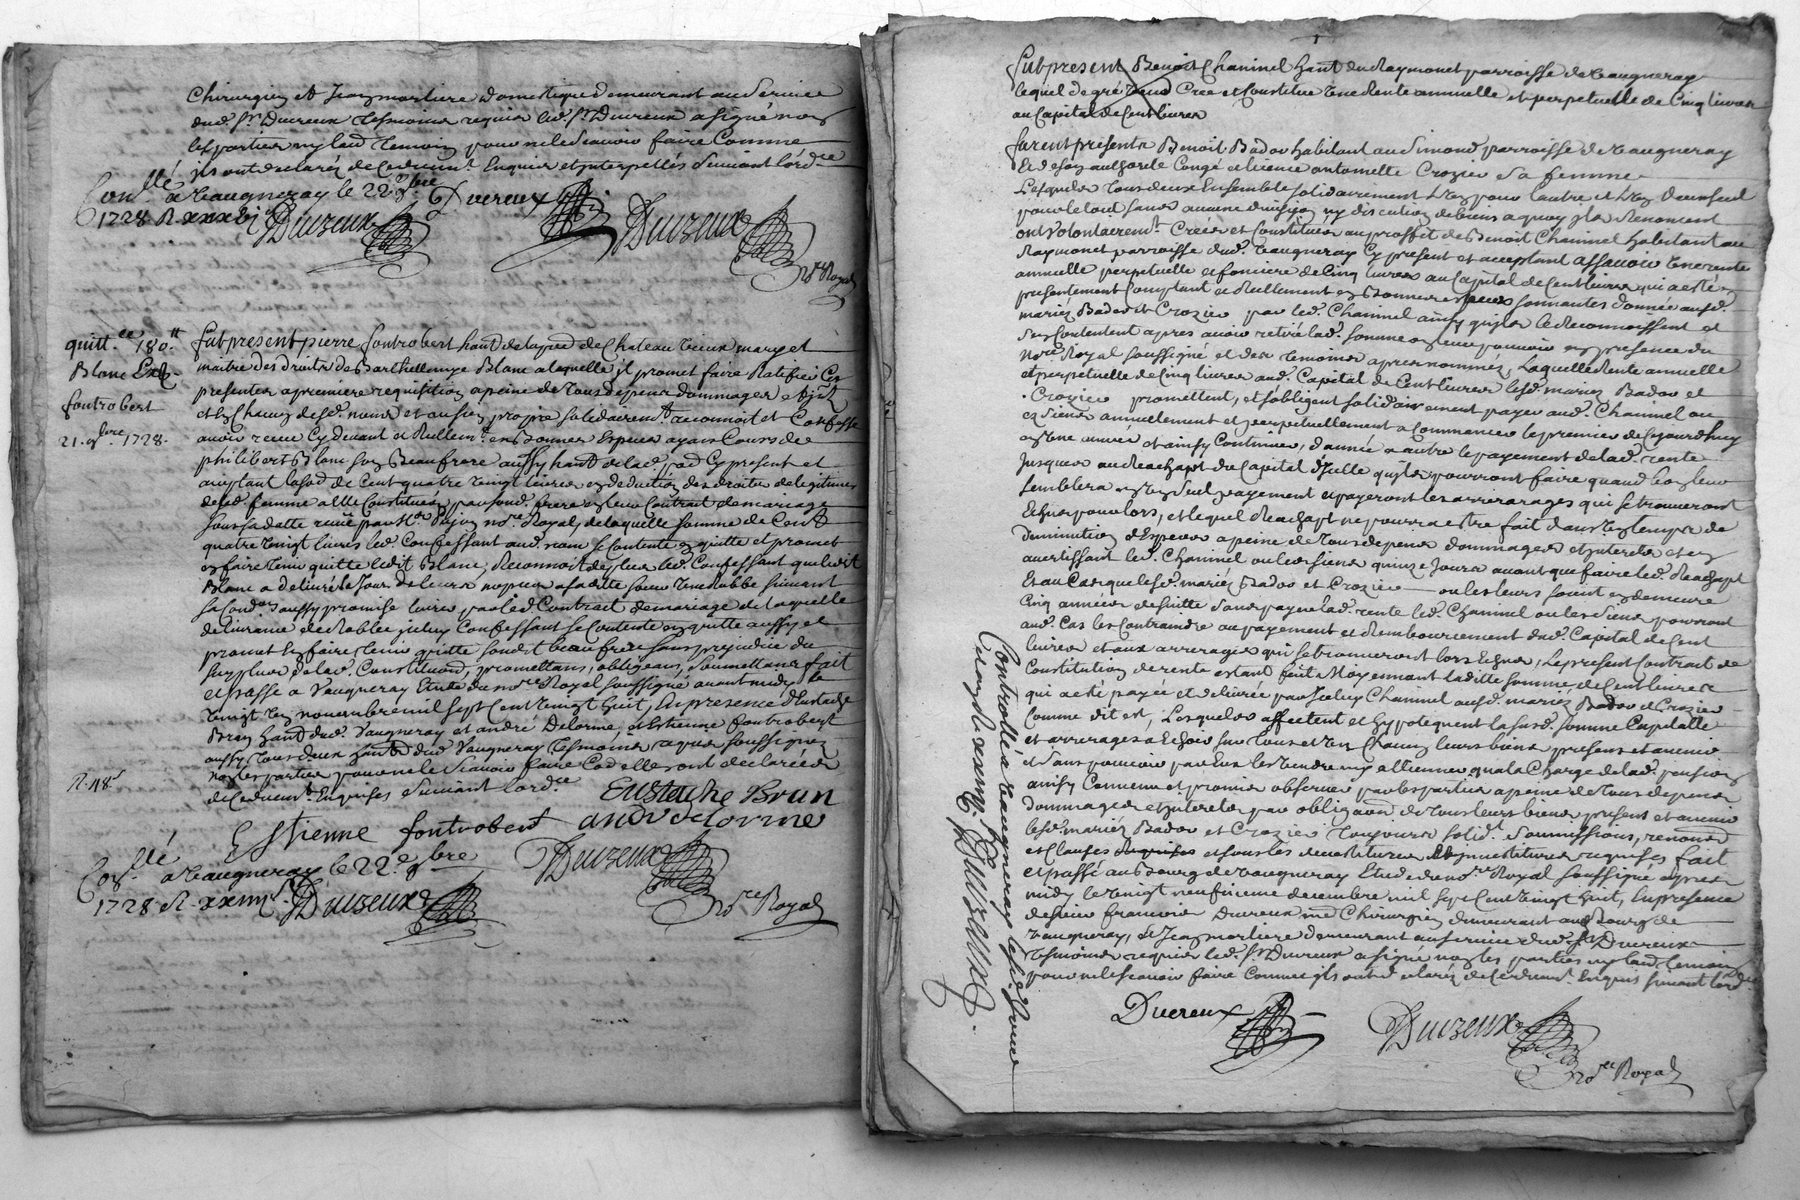 Chirurgien et Jean morliere domestique demeurant au Service
dud. Sr. Duvreux Tesmoins requis led. Sr. Duvreux a signé non
les parties ny led. Temoin pour ne le Scavoir faire Comme
ils ont declaré de ce duement Enquis et Interpellés Suivant l'ord.ce
Con.llé a Vaugneray le 22 9bre
1728 R
Duvreux
Duvreux
Duvreux
no.re Royal
quitt.ce 180.tt
Blanc
fontrobert
21. 9bre 1728.
fut present pierre fontrobert hant de la pad de Chateau vieux mary et
maitre des droits de Barthellemye Blanc a laquelle il promet faire Ratifier Ces
presentes a premiere requisition a peine de Tous depens dommages et
et en Chacun desd. noms et au sien propre solidairem.t reconnoit et Confesse
avoir receu Cy devant et Reellem.t en Bonnes Especes ayans Cours de
philibert Blanc son Beaufrere aussy hant de lad. pad Cy present et
acceptant la so.e de Cent quatre vingt livres en deduction des droits de legitimes
de sad. femme a elle Constitués par sond. frere en leur Contrat de mariage
sous sa datte receu par Me. no.re Royal, de laquelle somme de Cent
quatre vingt livres led. Confessant aud. nom se Contente en quitte et promet
en faire tenir quitte ledit Blanc, Reconnoit de plus led. Confessant que ledit
Blanc a delivré
aussy promise livrer par led. Contrat de mariage de laquelle
delivrance de Robbe iceluy Confessant se Contente en quitte aussy et
promet en faire tenir quitte sondit beaufrere sans prejudice du
surplus de lad. Constitution, promettans, obligeans, Soumettans fait
et passé a Vaugneray Etude du no.re Royal soussigné avant midy le
vingt un novembre mil sept Cent vingt huit, En presence d'Eustache
Brun hant dud. Vaugneray et andré Delorme, et Estienne fontrobert
aussy Tous deux hants dud. Vaugneray Tesmoins requis soussignez
non les parties pour ne le Scavoir faire
de ce duem.t Enquises Suivant l'ord.ce
R. 48s
Eustache Brun
Estienne fontrobert
andr delorme
Con.llé a Vaugneray le 22.e 9bre
1728 R. Duvreux
Duvreux
no.re Royal
fut present Benoit Chaninel hant du Raymonet parroisse de Vaugneray
lequel de gré vend Cree et Constitue Une Rente annuelle et perpetuelle de Cinq livres
au Capital de Cent livres
furent presents Benoit Badov habitant au Simond parroisse de Vaugneray
Et de son authorité Congé et licence antoinette Crozier sa femme
Lesquels Tous deux Ensemble solidairement L'un pour l'autre et L'un d'eux seul
pour le tout sans aucune division ny discution de biens a quoy ils Renoncent
ont volontairem.t Créé et Constitué au proffit de Benoit Chaninel habitant au
Raymonet parroisse dud. Vaugneray Cy present et acceptant assavoir Une rente
annuelle perpetuelle et fonciere de Cinq livres au Capital de Cent livres qui a esté
presentement Comptant et Reellement en Bonnes especes sonnantes donnée ausd.
mariez Badov et Crozier par led. Chaninel ainsy qu'ils le Reconnoissent et
s'en Contentent apres avoir retiré lad. somme en leur pouvoir en presence du
no.re Royal soussigné et des Temoins apres nommez, Laquelle Rente annuelle
et perpetuelle de Cinq livres aud. Capital de Cent livres lesd. mariez Badov et
Crozier promettent, et s'obligent solidairement payer aud. Chaninel ou
es siens annuellement et perpetuellement a Commencer le premier de Ce jourdhuy
en Une année et ainsy Continuer, d'année a autre le payement de lad. rente
Jusques au Reachapt du Capital d'Icelle qu'ils pourront faire quand bon leur
semblera en Un seul payement et payeront les arrerages qui se trouveront
Echus pour lors, et lequel Reachapt ne pourra estre fait dans Un temps de
diminution d'Especes a peine de Tous depens dommages et interets et en
avertissant led. Chaninel ou les siens quinze Jours avant que faire led. Reachapt
Et au Cas que lesd. mariez Badov et Crozier ou les leurs soient en demeure
Cinq années de suitte sans payer lad. rente led. Chaninel ou les siens pourront
aud. Cas les Contraindre au payement et Remboursement dud. Capital de Cent
livres et aux arrerages qui se trouveront lors Echus, Le present Contrat de
Constitution de rente estant fait Moyennant laditte somme de Cent livres
qui a esté payée et delivrée par Iceluy Chaninel ausd. mariez Badov et Crozier
Comme dit est, Lesquels affectent et hypotequent la susd. somme Capitalle
et arrerages a Echoir sur Tous et Un Chacun leurs biens presens et avenir
et sans pouvoir par Eux les Vendre ny alliener qu'a la Charge de lad. pension
ainsy Convenu et promis observer par les parties a peine de Tous depens
dommages et interets par obliga.on de Tous leurs biens presens et avenir
lesd. mariez Badov et Crozier Toujours solid.t Soumissions, renon.ons
et Clauses Requises et sous les devestitures et investitures requises fait
et passé au Bourg de Vaugneray Etude du no.re Royal soussigné apres
midy le Vingt neufvieme decembre mil sept Cent Vingt huit, En presence
de Sieur francois Duvreux me. Chirurgien demeurant aud. Bourg de
Vaugneray, et Jean morliere demeurant au service dud. Sr. Duvreux
Tesmoins requis led. Sr. Duvreux a signé non les parties ny led. Temoin
pour ne le Scavoir faire Comme ils ont declaré de Ce duem.t Enquis suivant l'ord.ce
Duvreux
Duvreux
no.re Royal
Controllé a Vaugneray le
Duvreux